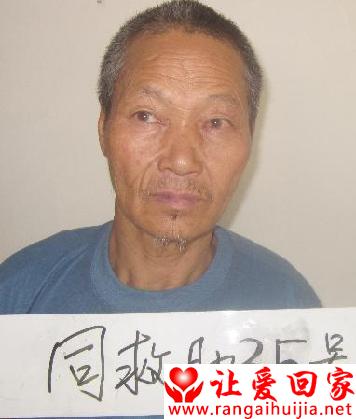 同救助25号
让爱回家
www.rangaihuijia.net